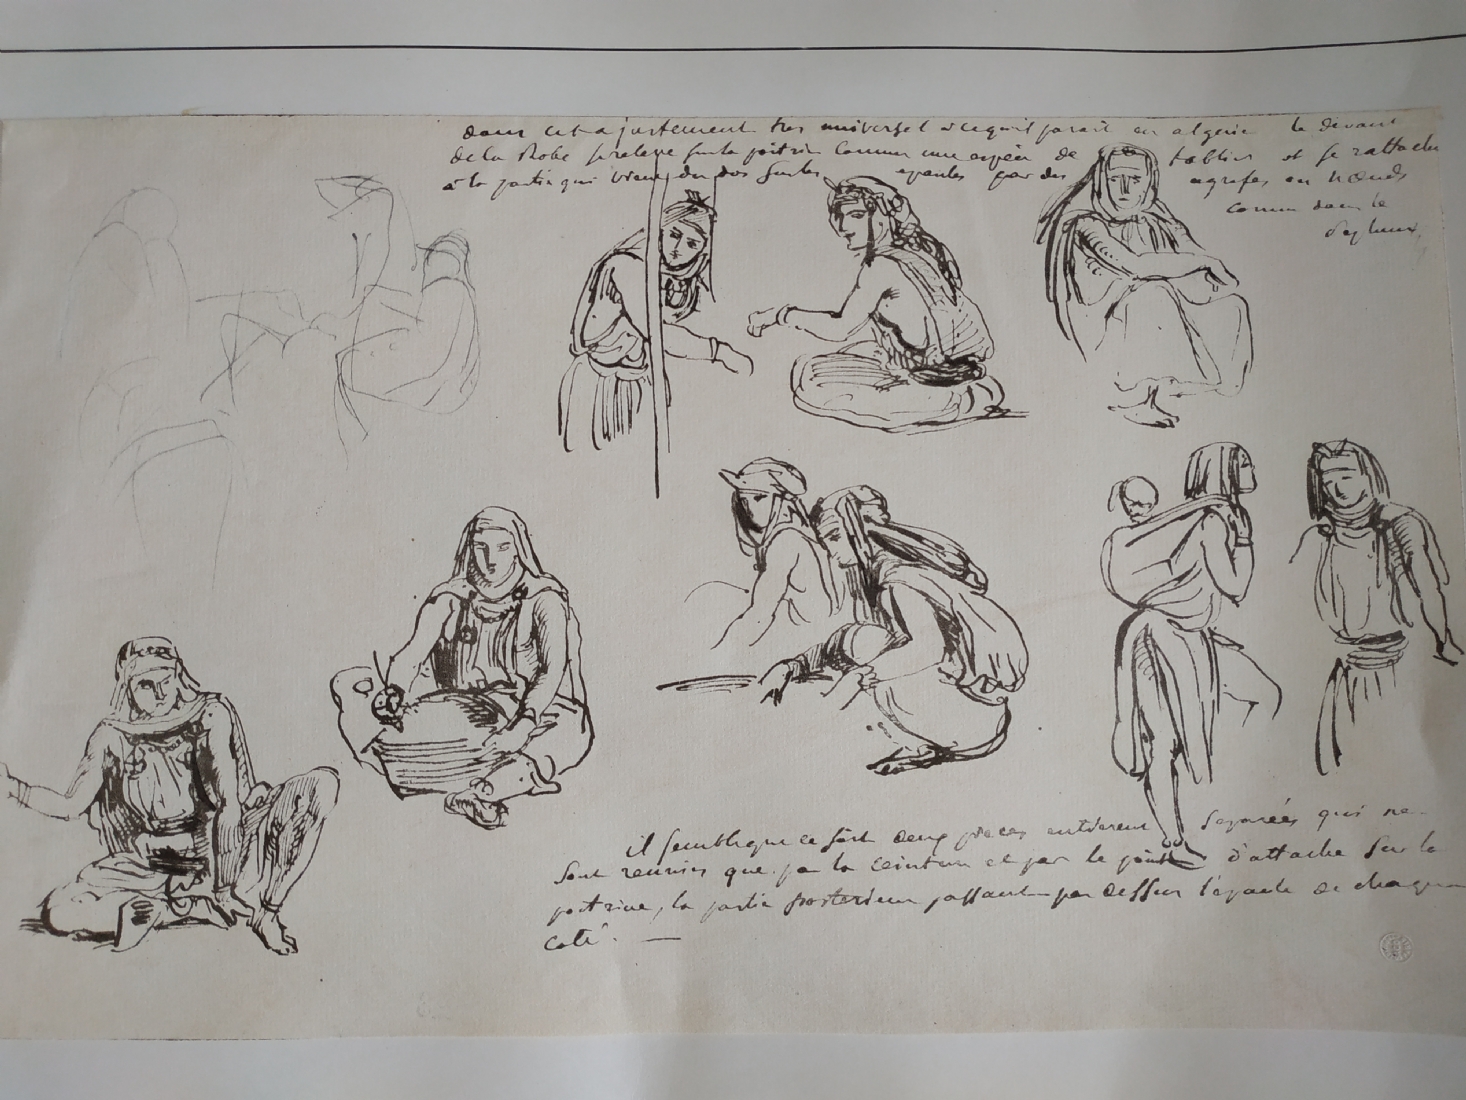 dans cet ajustement tres universel a ce qu'il parait en algerie le devant
de la Robe se releve sur la poitrine comme une espèce de tablier et se rattache
a la partie qui vient du dos sur les epaules par des agrafes en nœuds
comme dans le
il semble que ce soit deux pieces entierement separées qui ne
sont reunies que par la ceinture et par le point d'attache sur la
poitrine, la partie posterieure passant par dessus l'épaule de chaque
coté. —